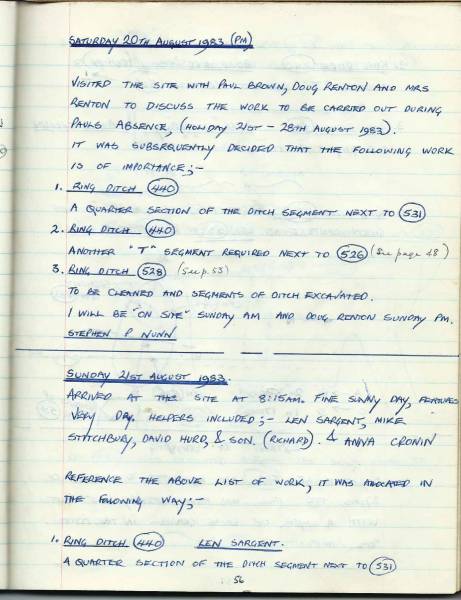 SATURDAY 20TH AUGUST 1983 (PM)
VISITED THE SITE WITH PAUL BROWN, DOUG RENTON AND MRS
RENTON TO DISCUSS THE WORK TO BE CARRIED OUT DURING
PAULS ABSENCE, (HOLIDAY 21ST - 28TH AUGUST 1983).
IT WAS SUBSEQUENTLY DECIDED THAT THE FOLLOWING WORK
IS OF IMPORTANCE;-
1. RING DITCH 440
A QUARTER SECTION OF THE DITCH SEGMENT NEXT TO 531
2. RING DITCH 440
ANOTHER "T" SEGMENT REQUIRED NEXT TO 526 (See page 48)
3. RING DITCH 528 (See p. 53)
TO BE CLEANED AND SEGMENTS OF DITCH EXCAVATED.
I WILL BE "ON SITE" SUNDAY AM AND DOUG RENTON SUNDAY PM.
STEPHEN P NUNN
SUNDAY 21ST AUGUST 1983.
ARRIVED AT THE SITE AT 8:15AM. FINE SUNNY DAY, FEATURES
VERY DRY. HELPERS INCLUDED;- LEN SARGENT, MIKE
STITCHBURY, DAVID HURD, & SON. (RICHARD). & ANNA CRONIN
REFERENCE THE ABOVE LIST OF WORK, IT WAS ALLOCATED IN
THE FOLLOWING WAY;-
1. RING DITCH 440 LEN SARGENT.
A QUARTER SECTION OF THE DITCH SEGMENT NEXT TO 531
56